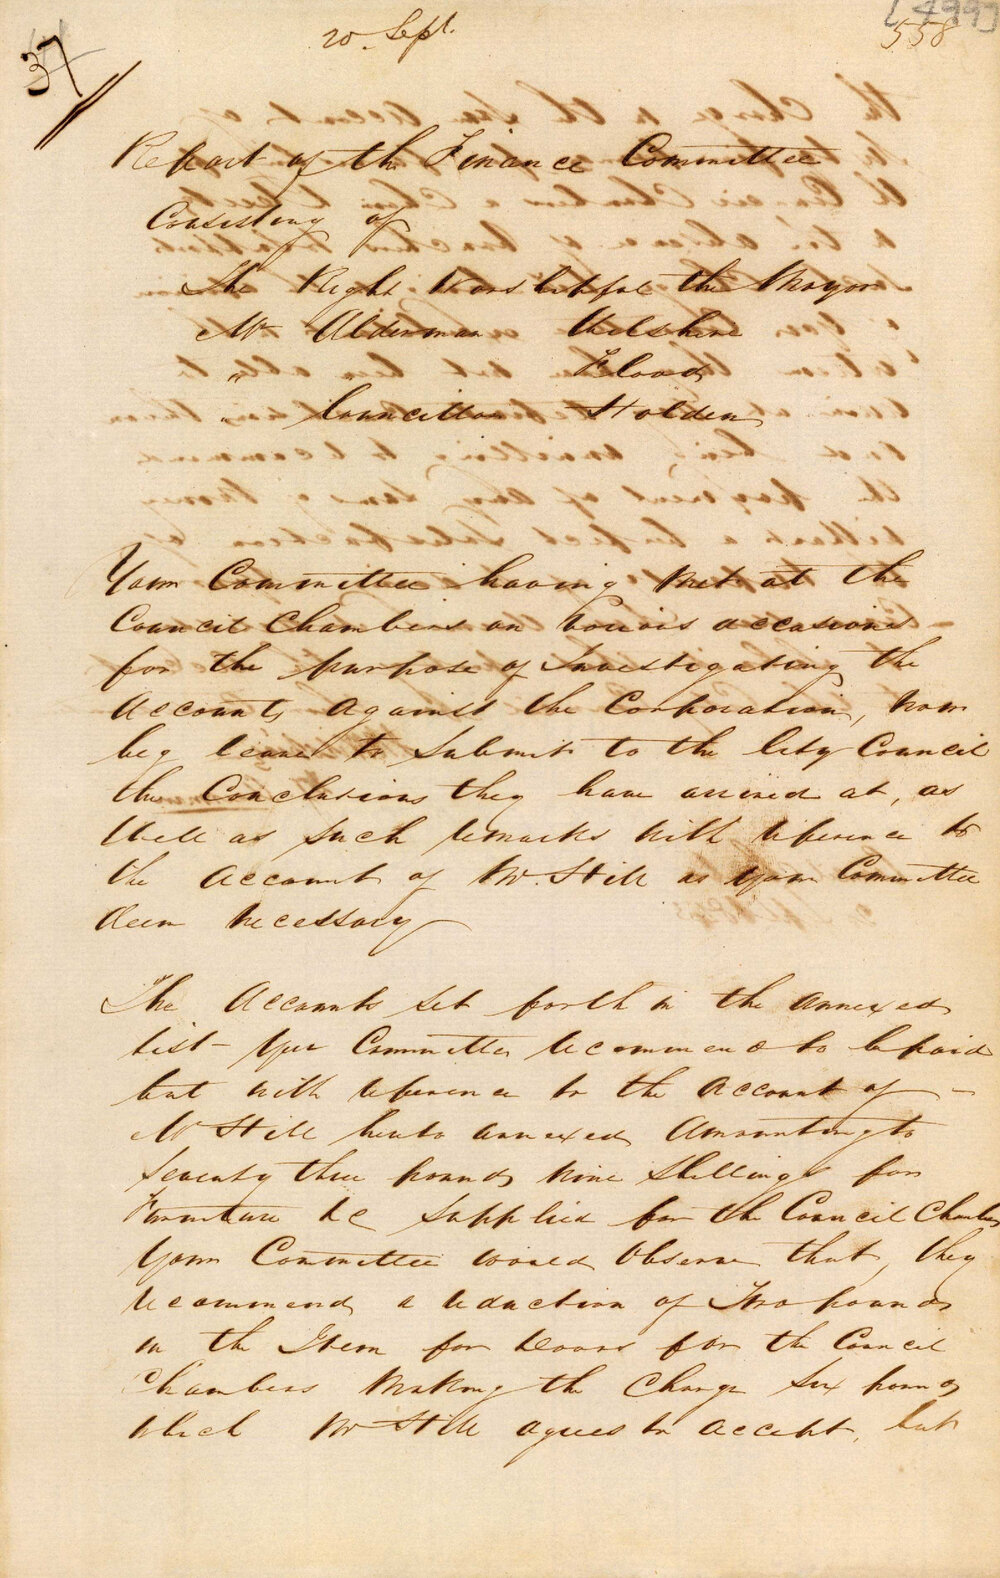 37
20. Sept.
[499]
558
Report of the Finance Committee
Consisting of
The Right Worshipful the Mayor
Mr Alderman Wilshire
" Flood
" Councillor Holden
Your Committee having met at the
Council Chambers on vorious occasions
for the purpose of Investigating the
Accounts against the Corporation, now
beg leave to submit to the City Council
the Conclusions they have arrived at, as
well as such remarks with reference to
the account of Mr. Still as your Committee
deem necessary
The Accounts set forth in the annexed
list – your Committee recommend to be paid
but with reference to the Account of –
Mr Still hereto annexed amounting to
seventy three pounds nine shillings for
Furniture &c supplied for the Council Chambers
your Committee would observe that, they
recommend a reduction of Two pounds
in the Item for Doors for the Council
Chambers making the charge six pounds
which Mr Still agrees to accept, but